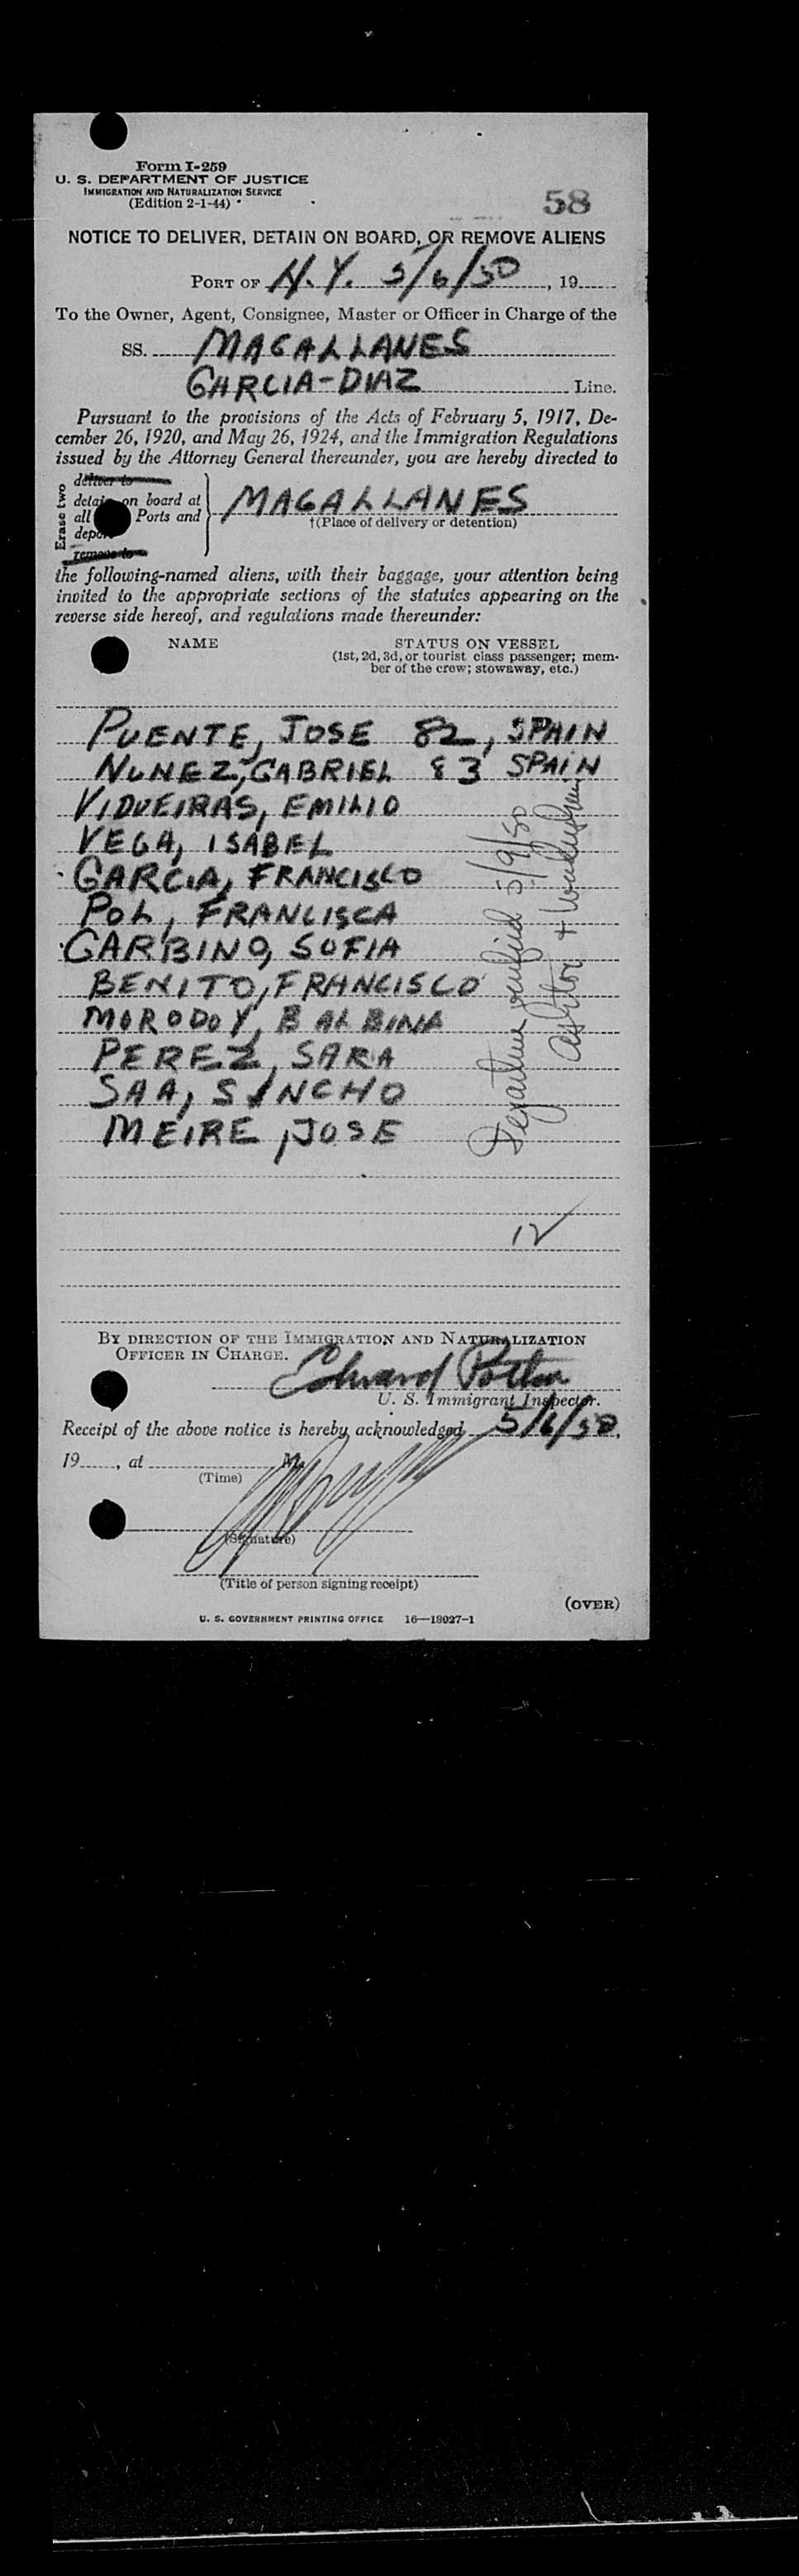 Form I-259
U. S. DEPARTMENT OF JUSTICE
IMMIGRATION AND NATURALIZATION SERVICE
(Edition 2-1-44)
58
NOTICE TO DELIVER, DETAIN ON BOARD, OR REMOVE ALIENS
PORT OF N.Y. 5/6/50, 19
To the Owner, Agent, Consignee, Master or Officer in Charge of the
SS. MAGALLANES
GARCIA-DIAZ Line.
Pursuant to the provisions of the Acts of February 5, 1917, De-
cember 26, 1920, and May 26, 1924, and the Immigration Regulations
issued by the Attorney General thereunder, you are hereby directed to
Erase two
deliver to
detain on board at
all Ports and
deport
remove to
MAGALLANES
†(Place of delivery or detention)
the following-named aliens, with their baggage, your attention being
invited to the appropriate sections of the statutes appearing on the
reverse side hereof, and regulations made thereunder:
NAME STATUS ON VESSEL
(1st, 2d, 3d, or tourist class passenger; mem-
ber of the crew; stowaway, etc.)
PUENTE, JOSE 82, SPAIN
NUNEZ, GABRIEL 83 SPAIN
VIDUEIRAS, EMILIO
VEGA, ISABEL
GARCIA, FRANCISCO
POL, FRANCISCA
GARBINO, SOFIA
BENITO, FRANCISCO
MORODOY, BALBINA
PEREZ, SARA
SAA, SINCHO
MEIRE, JOSE
Departure verified 5/9/50
Ashton +
12
BY DIRECTION OF THE IMMIGRATION AND NATURALIZATION
OFFICER IN CHARGE.
Edward Potter
U. S. Immigrant Inspector.
Receipt of the above notice is hereby acknowledged 5/6/50,
19, at M.
(Time)
(Signature)
(Title of person signing receipt)
(OVER)
U. S. GOVERNMENT PRINTING OFFICE 16—18027-1